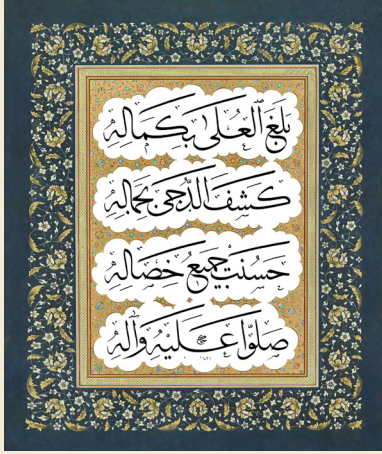 بَلَغَ ٱلْعُلَىٰ بِكَمَالِهِ
كَشَفَ الدُّجَى بِجَمَالِهِ
حَسُنَتْ جَمِيعُ خِصَالِهِ
صَلُّوا عَلَيْهِ وَآلِهِ